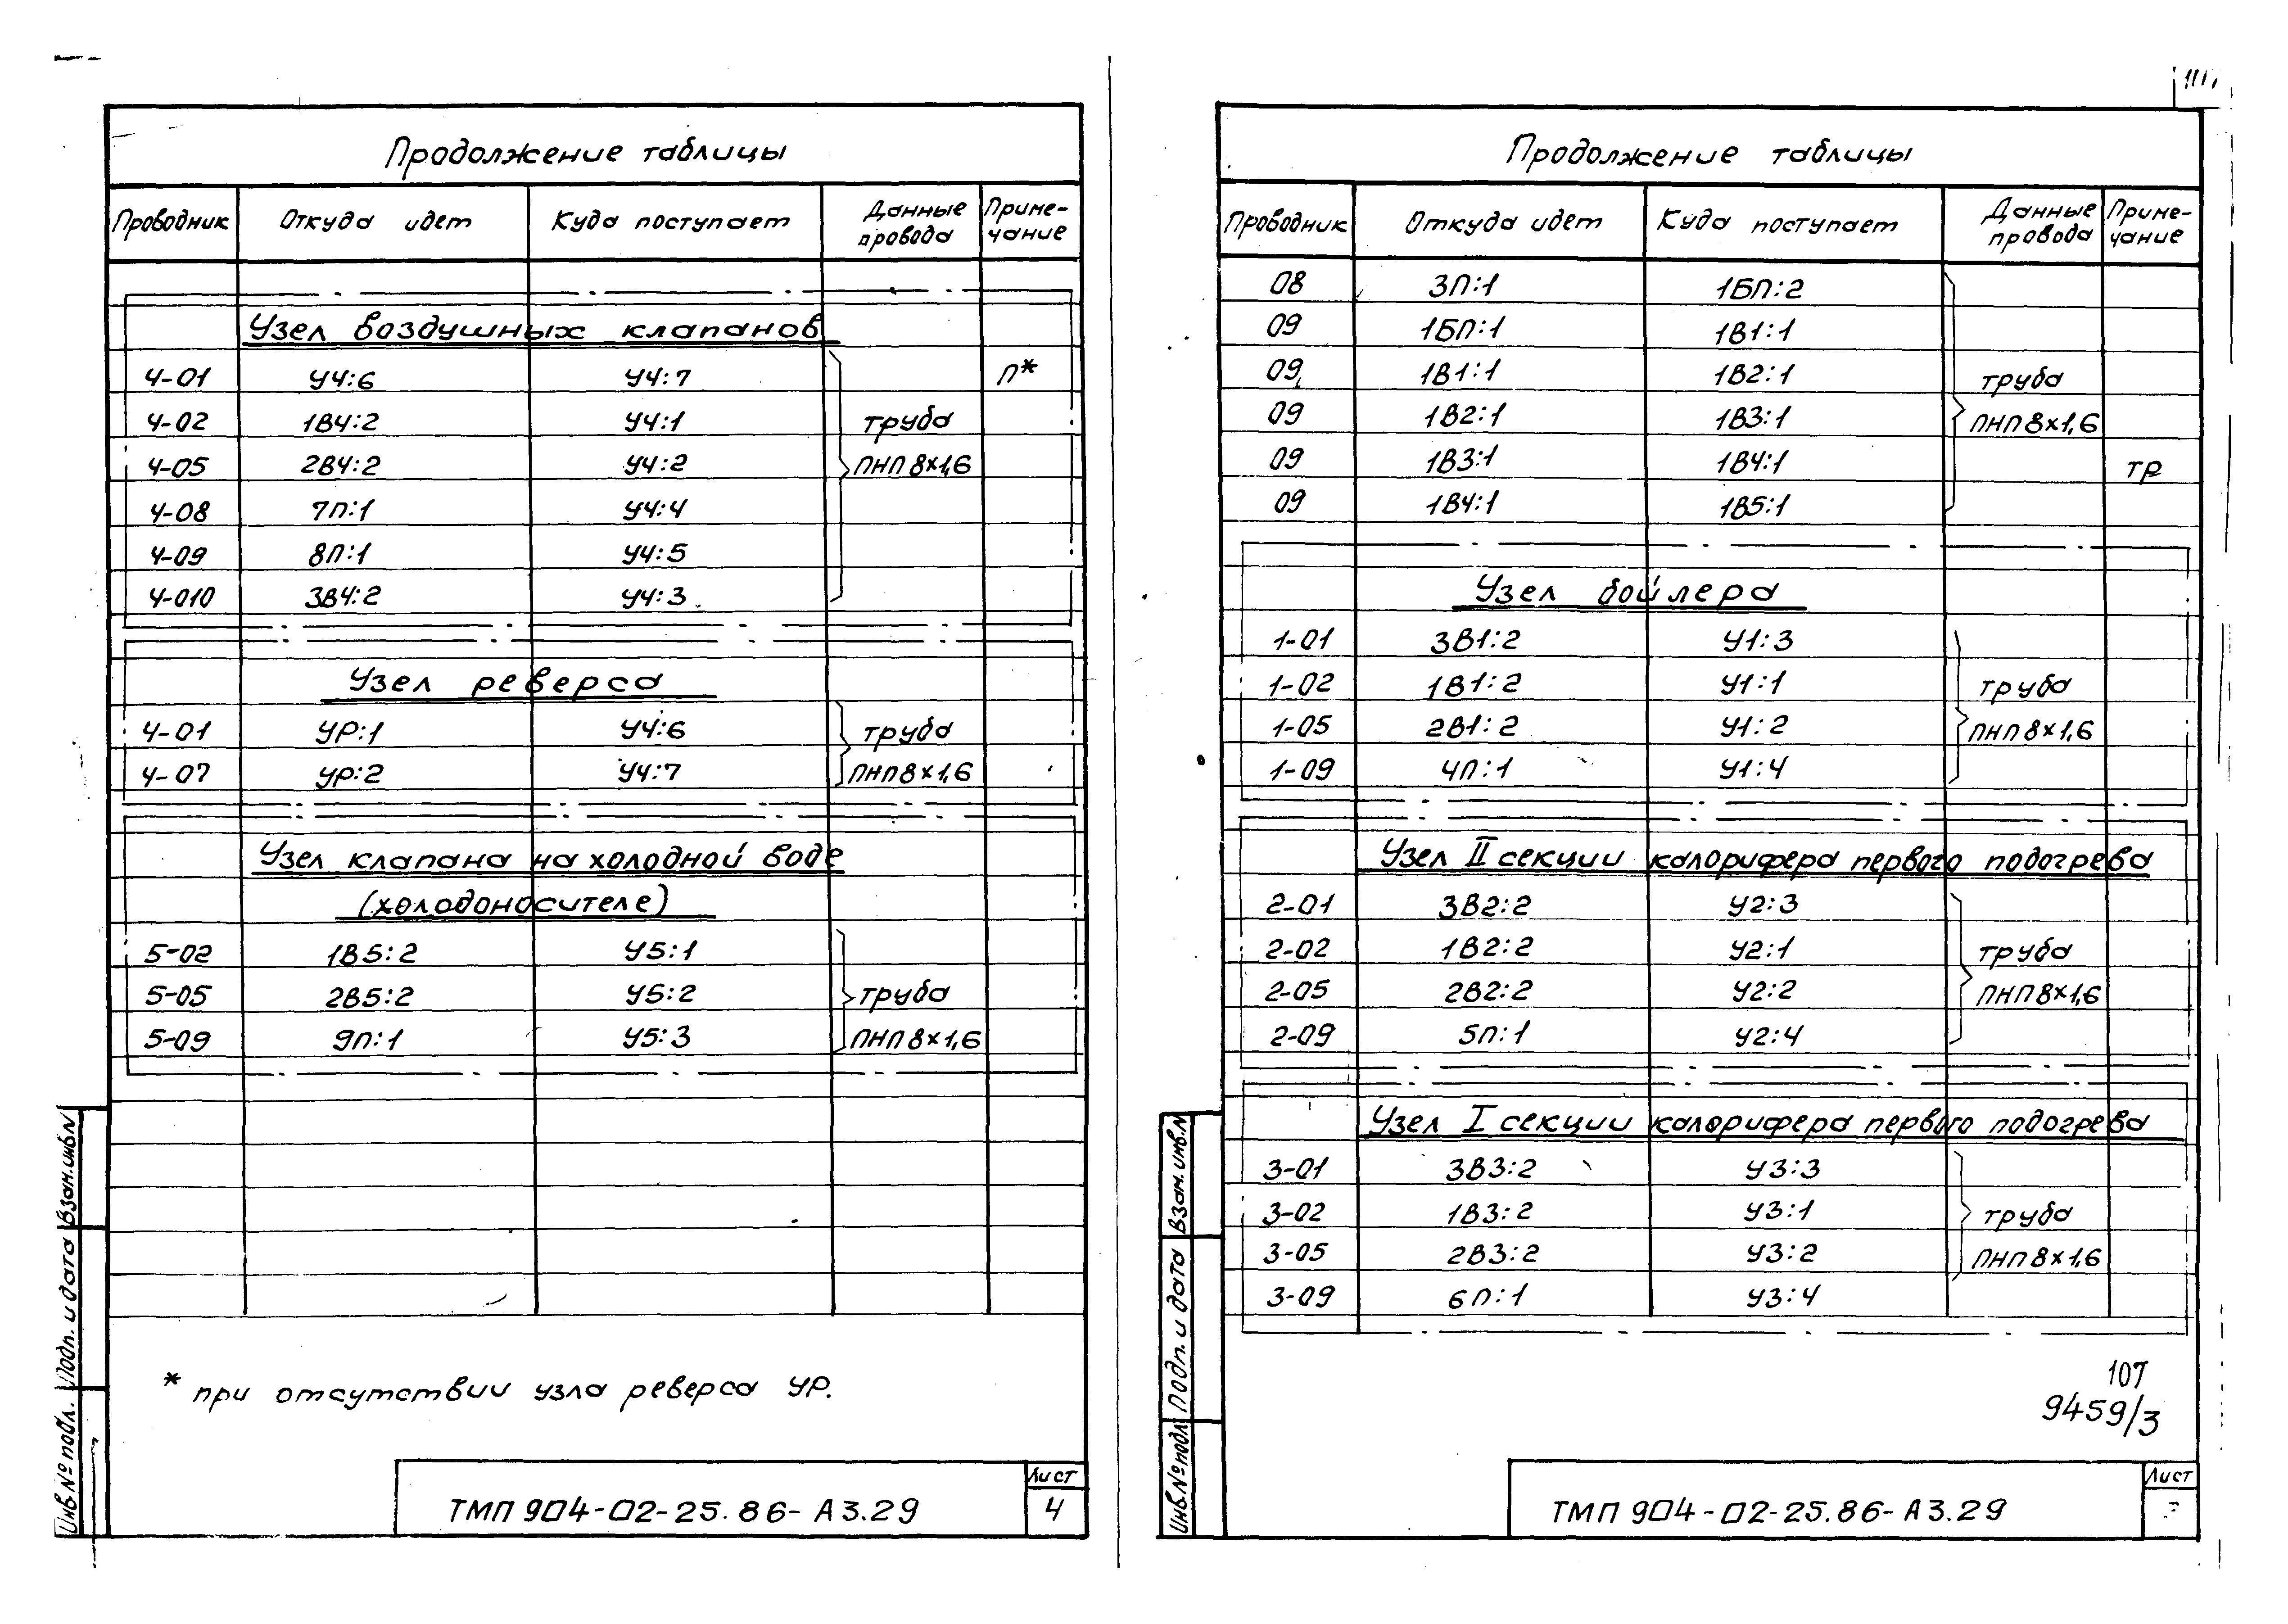 Продолжение таблицы
Проводник Откуда идет Куда поступает Данные провода Приме-чание
Узел воздушных клапанов
4-01 У4:6 У4:7 П*
4-02 1В4:2 У4:1 труба
4-05 2В4:2 У4:2 ПНП 8×1,6
4-08 7П:1 У4:4
4-09 8П:1 У4:5
4-010 3В4:2 У4:3
Узел реверса
4-01 УР:1 У4:6 труба
4-07 УР:2 У4:7 ПНП 8×1,6
Узел клапана на холодной воде
(холодоносителе)
5-02 1В5:2 У5:1
5-05 2В5:2 У5:2 труба
5-09 9П:1 У5:3 ПНП 8×1,6
* при отсутствии узла реверса УР.
Инв.№ подл. Подп. и дата Взам.инв.№
ТМП 904-02-25.86-А3.29
Лист
4
Продолжение таблицы
Проводник Откуда идет Куда поступает Данные провода Приме-чание
08 3П:1 1БП:2
09 1БП:1 1В1:1
09 1В1:1 1В2:1 труба
09 1В2:1 1В3:1 ПНП 8×1,6
09 1В3:1 1В4:1 тр
09 1В4:1 1В5:1
Узел бойлера
1-01 3В1:2 У1:3
1-02 1В1:2 У1:1 труба
1-05 2В1:2 У1:2 ПНП 8×1,6
1-09 4П:1 У1:4
Узел II секции калорифера первого подогрева
2-01 3В2:2 У2:3
2-02 1В2:2 У2:1 труба
2-05 2В2:2 У2:2 ПНП 8×1,6
2-09 5П:1 У2:4
Узел I секции калорифера первого подогрева
3-01 3В3:2 У3:3
3-02 1В3:2 У3:1 труба
3-05 2В3:2 У3:2 ПНП 8×1,6
3-09 6П:1 У3:4
9459/3
Инв.№ подл. Подп. и дата Взам.инв.№
ТМП 904-02-25.86-А3.29
Лист